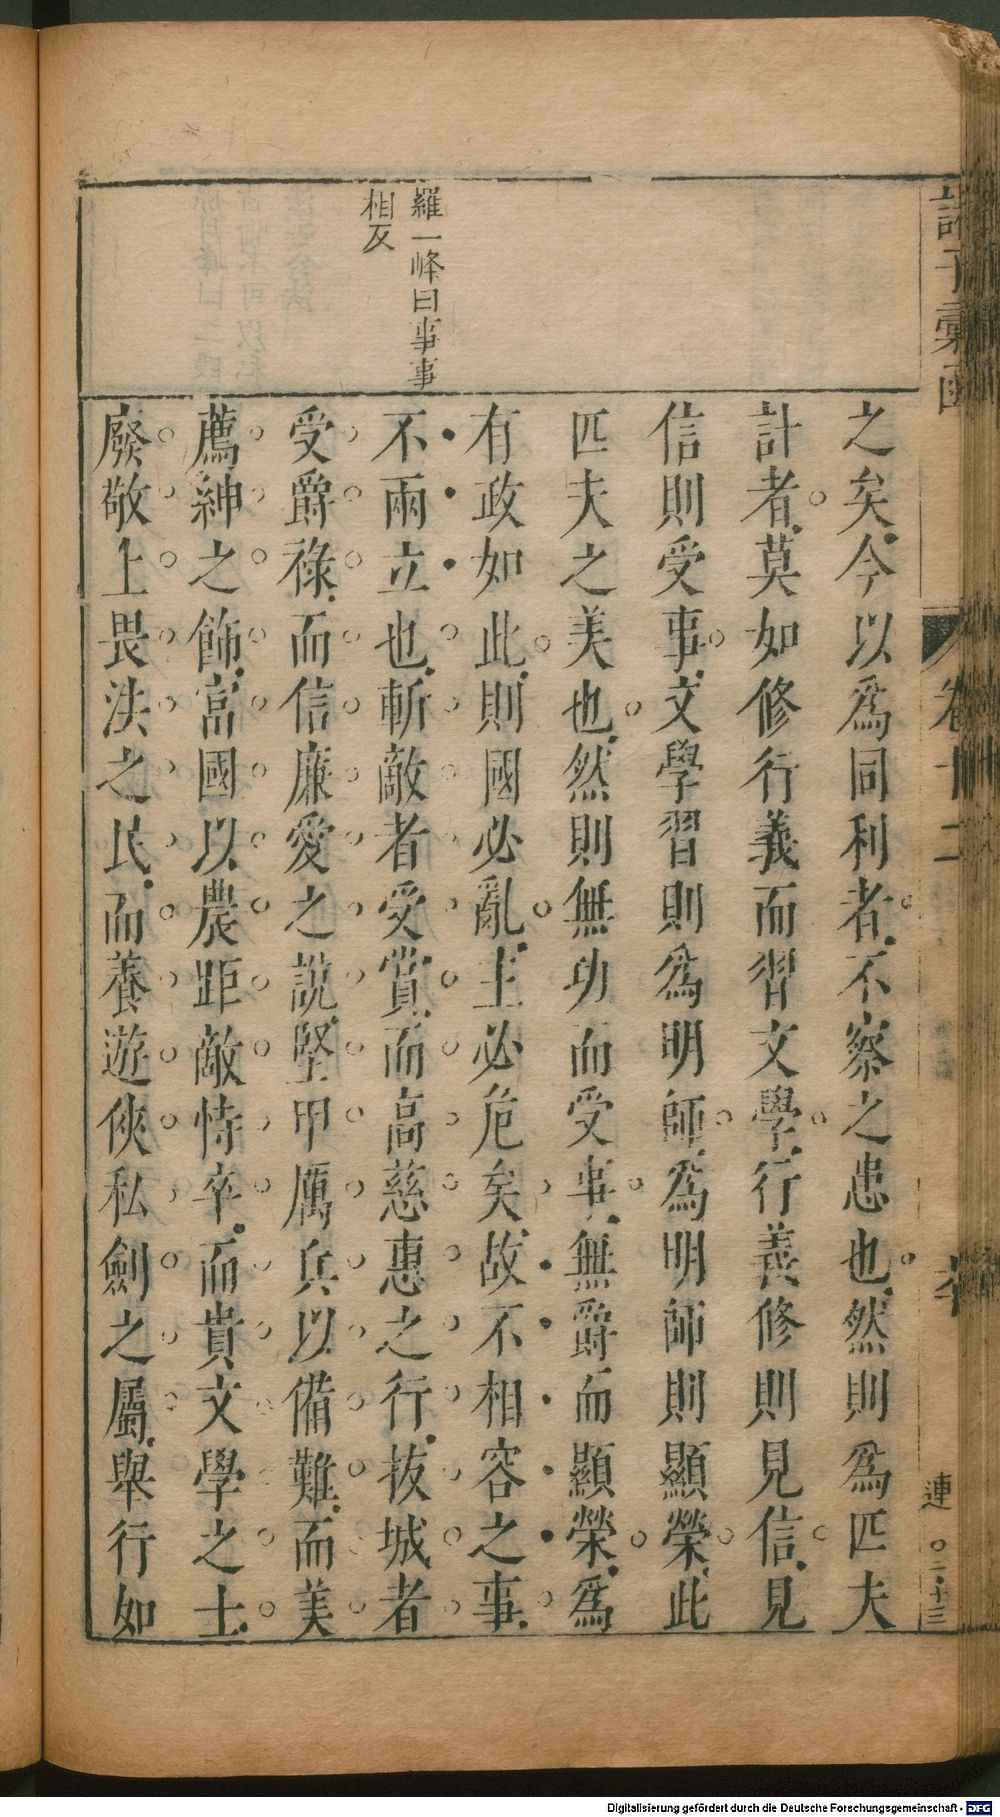 羅一峰曰事事
相反
之矣今以爲同利者不察之患也然則爲匹夫
計者莫如修行義而習文學行義修則見信見
信則受事文學習則爲明師爲明師則顯榮此
匹夫之美也然則無功而受事無爵而顯榮爲
有政如此則國必亂主必危矣故不相容之事
不兩立也斬敵者受賞而高慈惠之行拔城者
受爵祿而信廉愛之說堅甲厲兵以備難而美
薦紳之飾富國以農距敵恃卒而貴文學之士
廢敬上畏法之民而養遊俠私劍之屬舉行如
諸子彙函
卷十二
連
〇二•十三
Digitalisierung gefördert durch die Deutsche Forschungsgemeinschaft - DFG